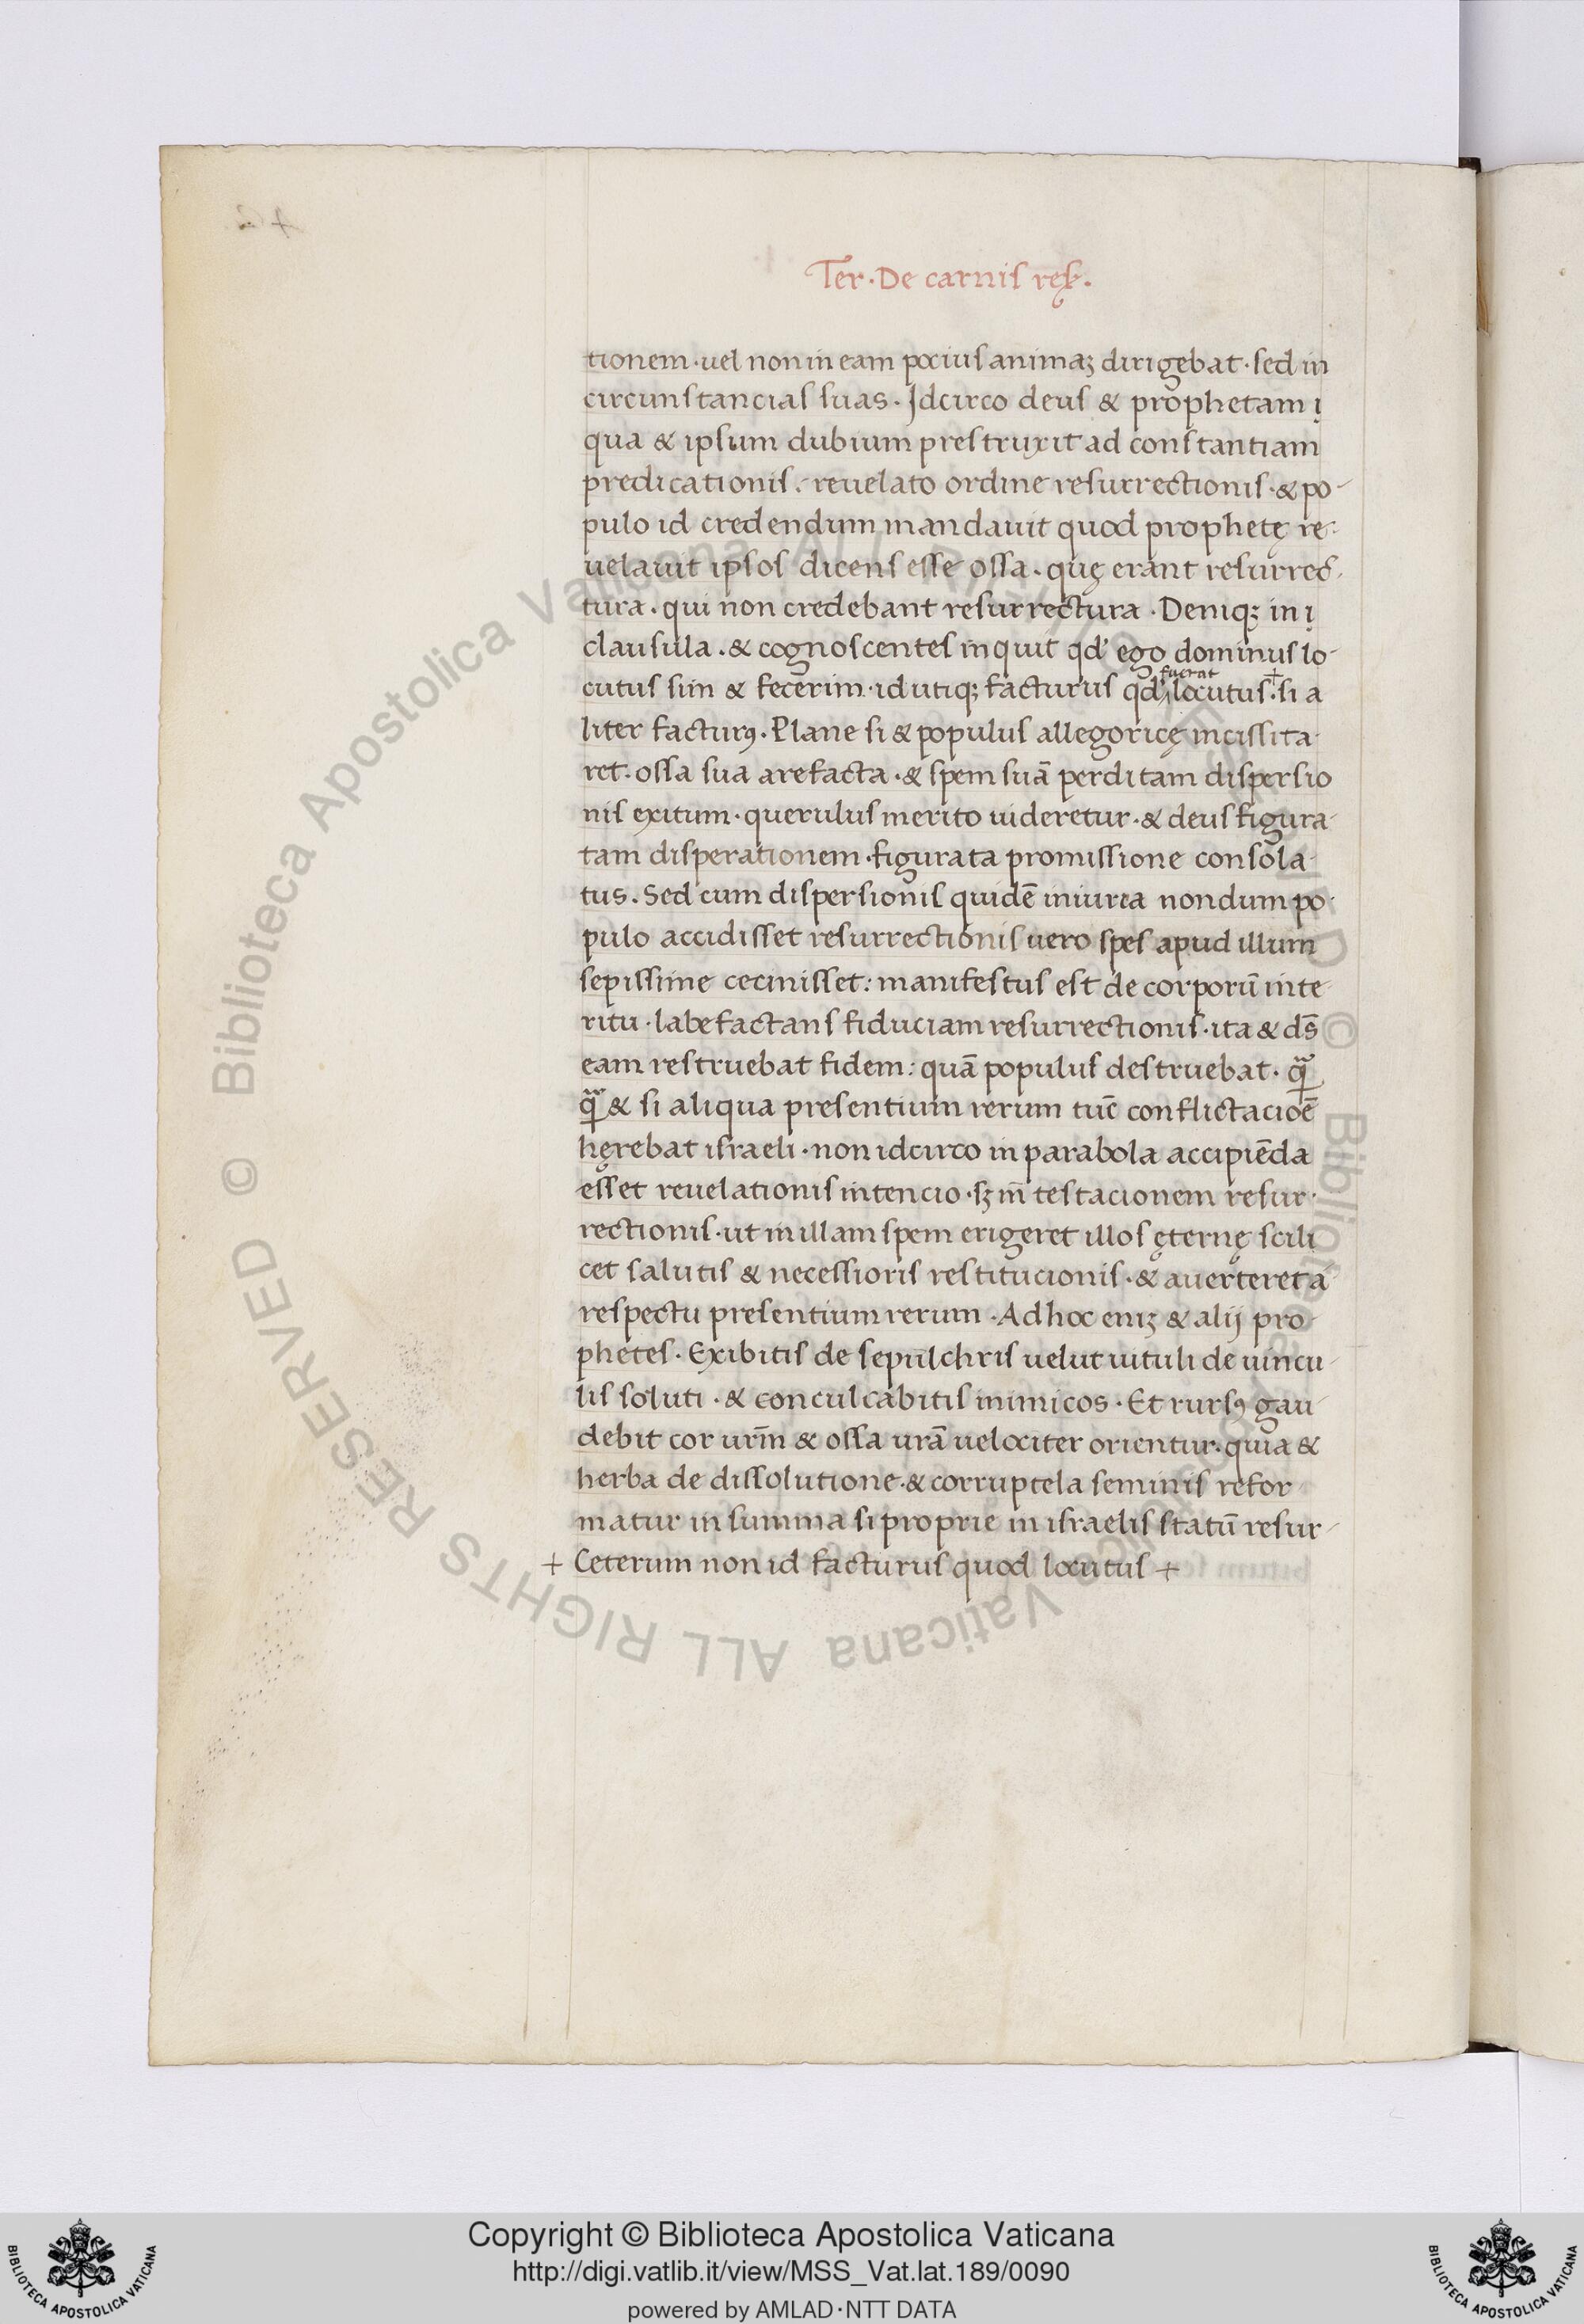 Ter. De carnis reꝭ.
tionem · uel non in eam pocius animaꝫ dirigebat · sed in
circunstancias suas. Idcirco deus & prophetam ı̨
qua & ipsum dubium prestruxit ad constantiam
predicationis. reuelato ordine resurrectionis · & po-
pulo id credendum mandauit quod prophetę re-
uelauit ipsos dicens esse ossa. quę erant resurrec-
tura. qui non credebant resurrectura · Deniqꝫ in ı̨
clausula. & cognoscentes inquit qd' ego dominus lo-
fuerat +
cutus sim & fecerim · id utiqꝫ facturus qd' locutus · si a
liter facturꝰ. Plane si & populus allegoricę mcissita-
ret · ossa sua arefacta · & spem suā perditam dispersio
nis exitum · querulus merito uideretur · & deus figura-
tam disperationem · figurata promissione consola-
tus. Sed cum dispersionis quidē iniuria nondum po-
pulo accidisset resurrectionis uero spes apud illum
sepissime cecinisset: manifestus est de corporū inte
ritu · labefactans fiduciam resurrectionis · ita & ds̄
eam restruebat fidem: quā populus destruebat. qͣꝗ
qͣꝗ & si aliqua presentium rerum tūc conflictacioē
hęrebat israeli · non idcirco in parabola accipiēda
esset reuelationis intencio · sꝫ in̄ testacionem resur-
rectionis · ut in illam spem erigeret illos ęternę scili
cet salutis & necessioris restitucionis · & auerteret a
respectu presentium rerum · Ad hoc eniꝫ & alij pro-
phetes · Exibitis de sepulchris uelut uituli de uincu-
lis soluti · & conculcabitis inimicos · Et rursꝰ gau-
debit cor urm̄ & ossa urā uelociter orientur · quia &
herba de dissolutione · & corruptela seminis refor
matur in summa si proprie in israelis statū resur-
+ Ceterum non id facturus quod locutus +
Copyright © Biblioteca Apostolica Vaticana
http://digi.vatlib.it/view/MSS_Vat.lat.189/0090
powered by AMLAD·NTT DATA
BIBLIOTECA APOSTOLICA VATICANA
BIBLIOTECA APOSTOLICA VATICANA
© Biblioteca Apostolica Vaticana ALL RIGHTS RESERVED © Biblioteca Apostolica Vaticana ALL RIGHTS RESERVED